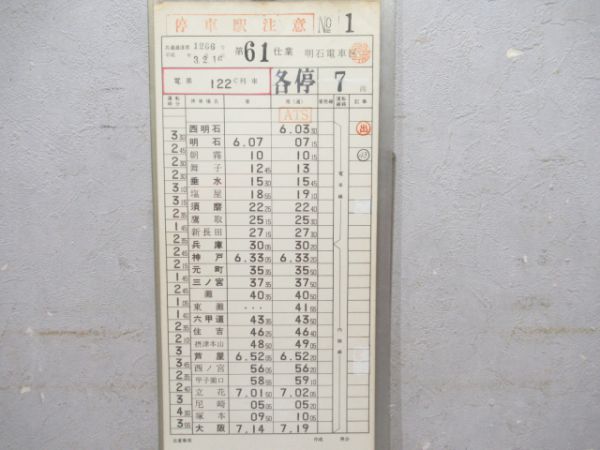 停車駅注意 No 1
1266
3.2.16 第61仕業 明石電車区
電車 122C列車 各停 7両
停車場名 着 発(通) 記事
ATS
西明石 6.03 30 出
3 30
明石 6.07 07 15
2 45
朝霧 10 10 15
2 30
舞子 12 45 13
2 30
垂水 15 30 15 45
3 10
塩屋 18 55 19 10
3 15
須磨 22 25 22 40
2 35
鷹取 25 15 25 30
1 45
新長田 27 15 27 30
2 35
兵庫 30 05 30 20
2 45
神戸 6.33 05 6.33 20
2 15
元町 35 35 35 50
1 45
三ノ宮 37 35 37 50
2 45
灘 40 35 40 50
1 05
東灘 ・・・ 41 55
1 40
六甲道 43 35 43 50
2 35
住吉 46 25 46 40
2 10
摂津本山 48 50 49 05
3
芦屋 6.52 05 6.52 20
3 45
西ノ宮 56 05 56 20
2 35
甲子園口 58 55 59 10
2 40
立花 7.01 50 7.02 05
3
尼崎 05 05 05 20
4 30
塚本 09 50 10 05
3 55
大阪 7.14 7.19
電車線
内側線